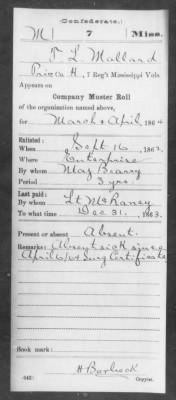 Confederate.
M 7 Miss.
F L Mallard
Priv Co H, 7 Reg't Mississippi Vols.
Appears on
Company Muster Roll
of the organization named above,
for March & April, 1864
Enlisted:
When Sept 16, 1862.
Where Enterprise
By whom Maj
Period 3 yrs.
Last paid:
By whom Lt McRaney
To what time Dec 31, 1863.
Present or absent Absent.
Remarks: Absent sick since
April 6/64 Surg Certificate
Book mark:
(642)
Copyist.